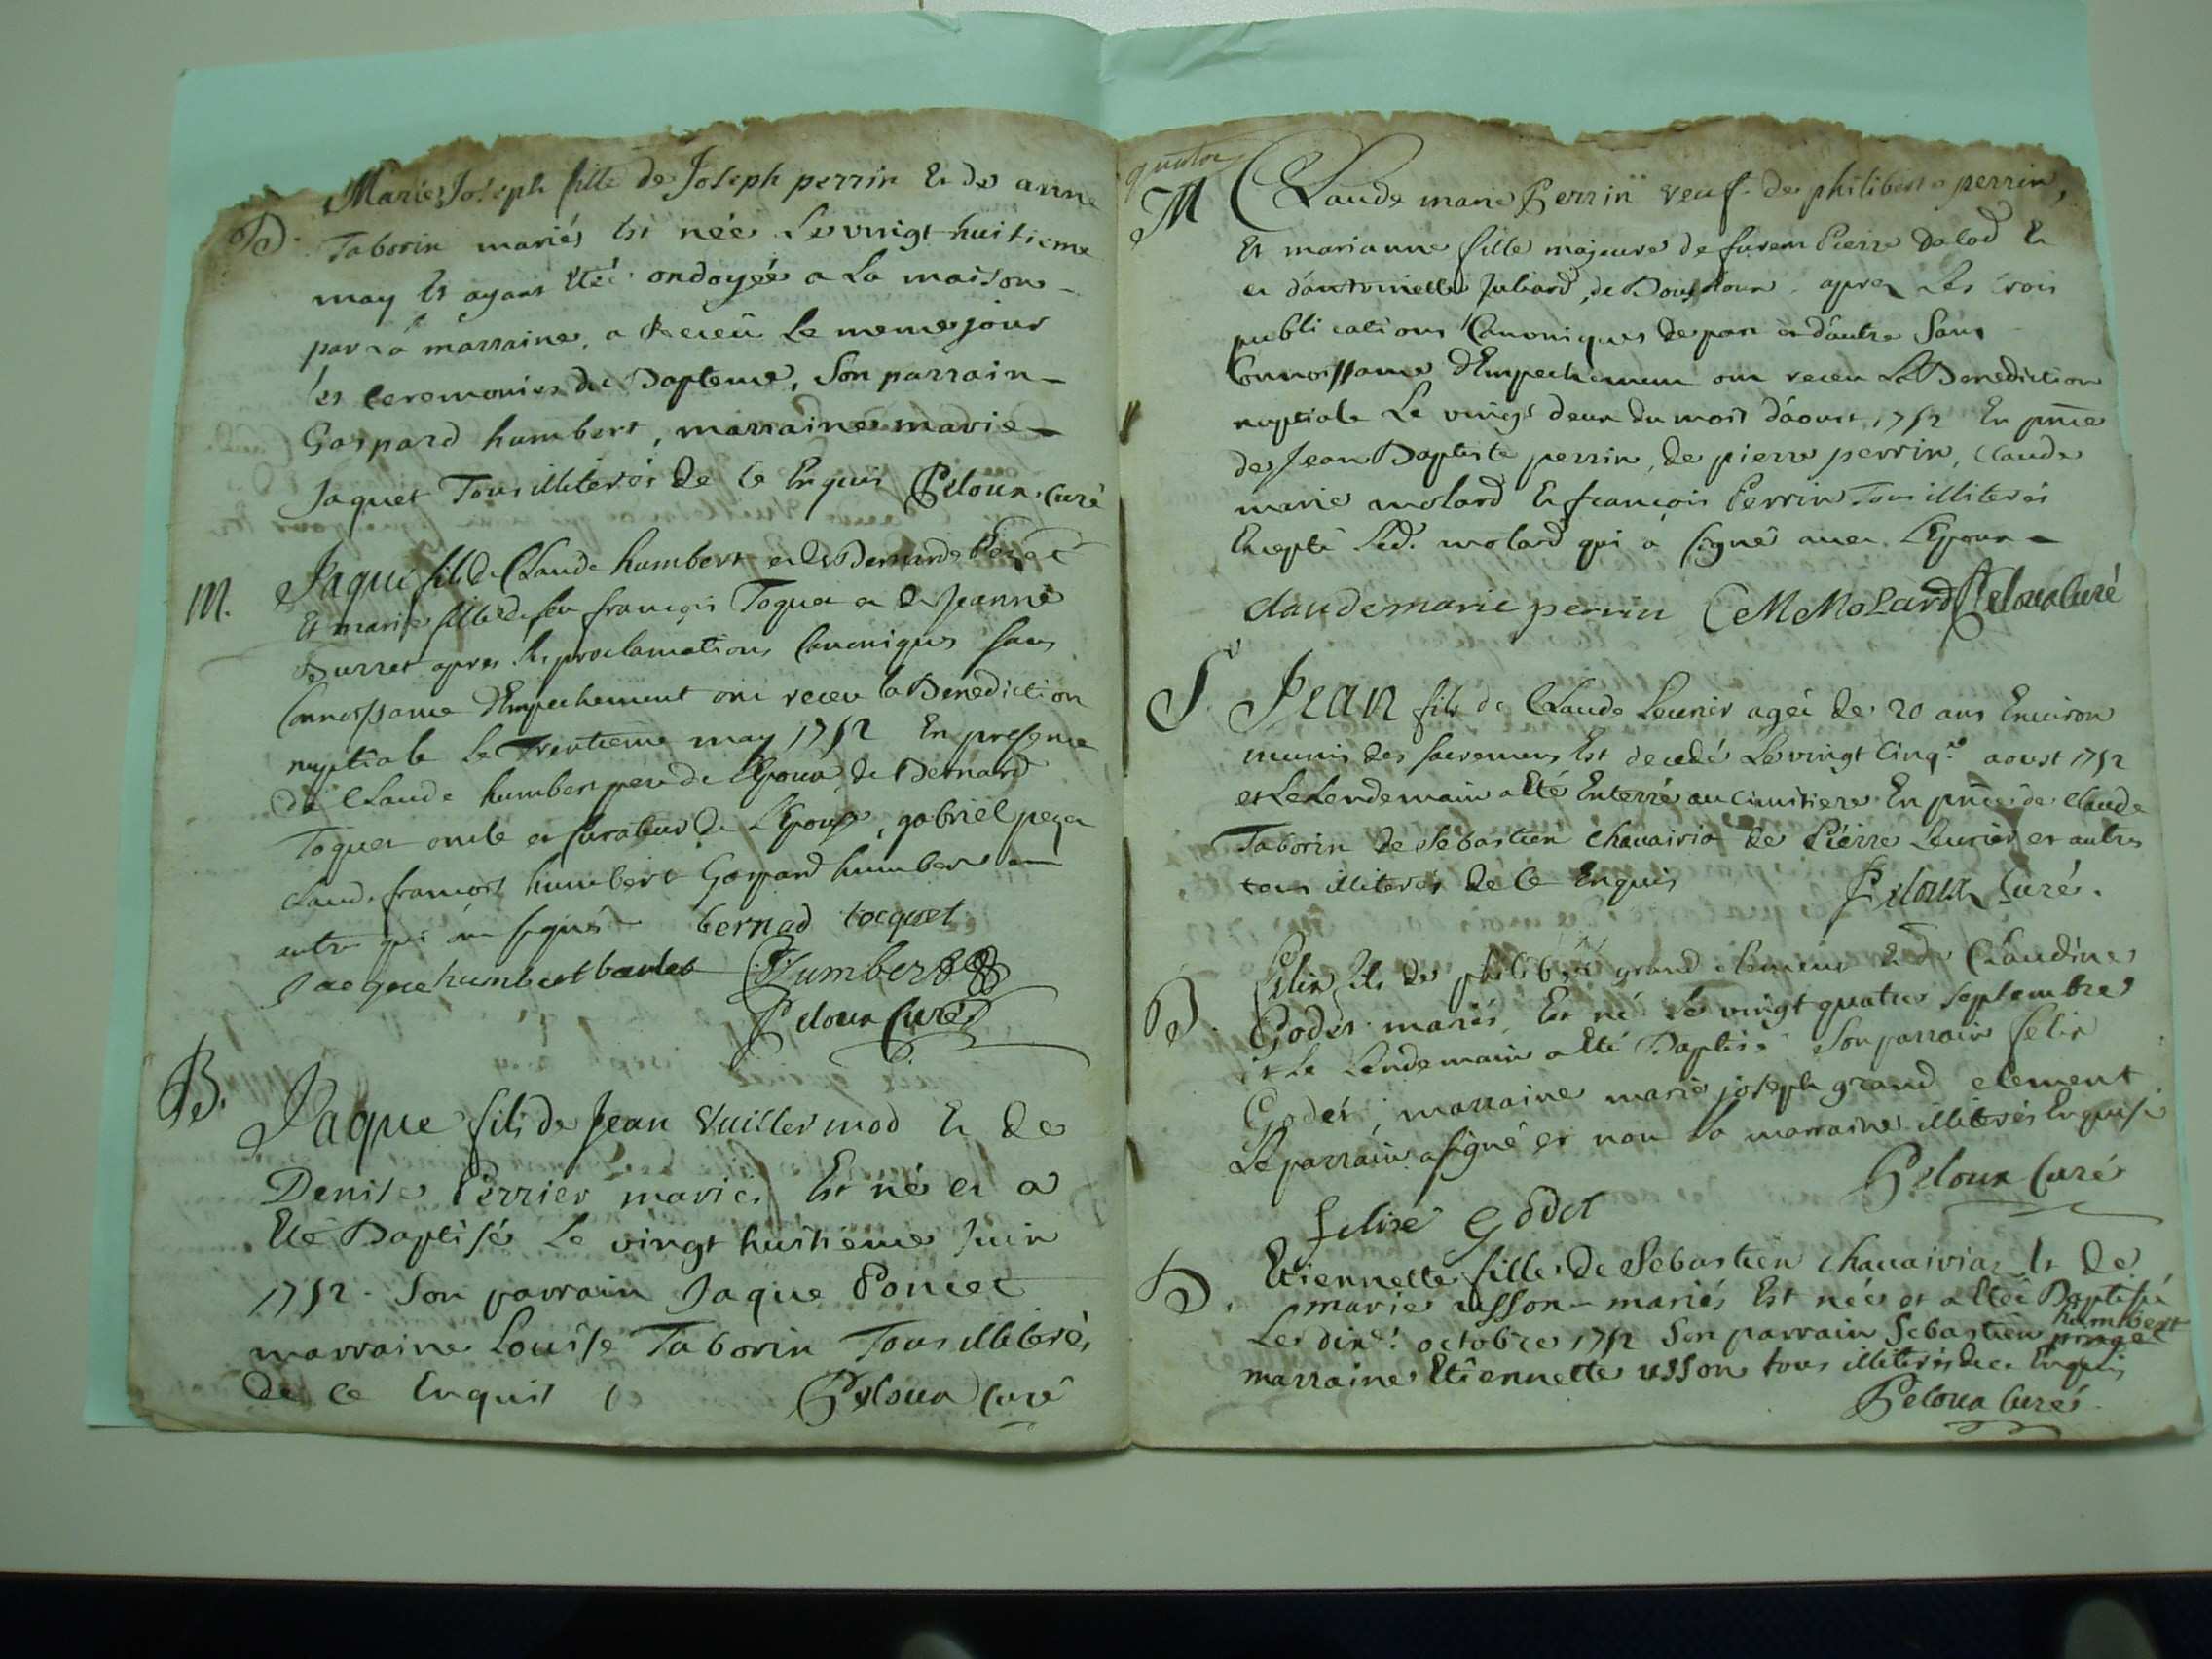 B.
Marie Joseph fille de Joseph perrin Et de anne
Taborin mariés Est née Le vingt-huitieme
may Et ayant Eté ondoyée a La maison
par La marraine, a Receu Le meme jour
les Ceremonies du Bapteme, Son parrain
Gaspard humbert, marraine marie
Jaquet Tous illiterés de ce Enquis Peloux Curé
M.
Jaque fils de Claude humbert et de Bernarde
Et marie fille de feu françois Toquet et de Jeanne
Burret apres les proclamations Canoniques sans
Connoissance d'Empechement ont receu la Benediction
nuptiale Le Trentieme may 1752 En presence
de Claude humbert pere de l'Epoux, de Bernard
Toquet oncle et curateur de L'Epouse, gabriel
Claude françois humbert Gaspard humbert
autre qui ont signé bernad tocquet
Jacque humbert Humbert
Peloux Curé
B.
Jaque fils de Jean Vuillermod Et de
Denise Perrier mariés Est né et a
Eté Baptisé Le vingt huitieme Juin
1752. Son parrain Jaque Poncet
marraine Louise Taborin Tous illiterés
de ce Enquis Peloux Curé
quatre
M
Claude marie Perrin veuf de philiberte perrin,
Et marianne fille majeure de Pierre Dalod Et
et d'antoinette Juliard, de apres Les trois
publications Canoniques de part et d'autre Sans
Connoissance d'Empechement ont receu La Benediction
nuptiale Le vingt deux du mois d'aoust 1752 En pnce
de Jean Baptiste perrin, de pierre perrin, Claude
marie molard Et françois Perrin Tous illiterés
Excepté Led. molard qui a signé avec L'Epoux
claude marie perrin C M MoLard Peloux Curé
S.
Jean fils de Claude Leurier agé de 20 ans Environ
munis des sacremens Est decedé Le vingt Cinq.e aoust 1752
et Le Lendemain a Eté Enterré au Cimitiere En pnce de Claude
Taborin de Sebastien Chavairia de Pierre Leurier et autres
tous illiterés de ce Enquis Peloux Curé.
B.
Felix fils de philibert grand clement et de Claudine
Godet mariés, Est né Le vingt quatre Septembre
et Le Lendemain a Eté Baptisé Son parrain felix
Godet, marraine marie joseph grand clement
Le parrain a signé et non La marraine illiterés Enquise
Peloux Curé
felixe Godet
B.
Etiennette fille de Sebastien Chavairiaz Et de
marie usson mariés Est née et a Eté Baptisé
Le dix.e octobre 1752 Son parrain Sebastien humbert
marraine Etiennette usson tous illiterés de ce Enquis
Peloux Curé